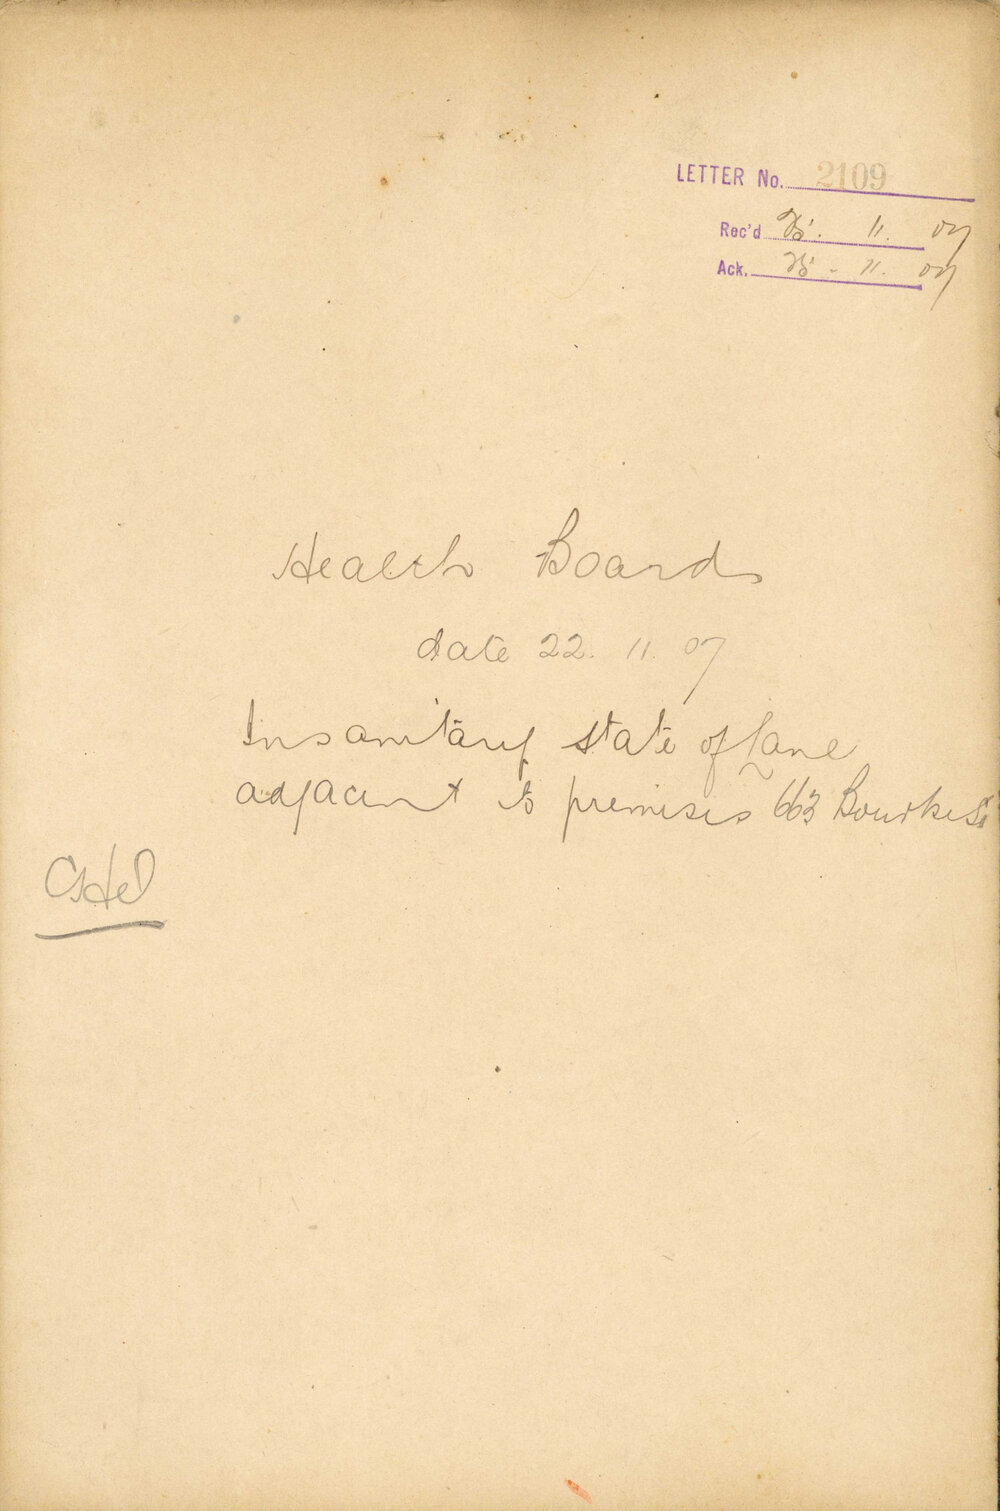 LETTER No. 2109
Rec'd 25. 11. 07
Ack. 25. 11. 07
Health Board
date 22. 11. 07
Insanitary state of Lane
adjacent to premises 663 Bourke St